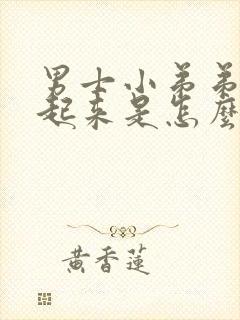 男士小弟弟
起来是怎麼
黄香蓮